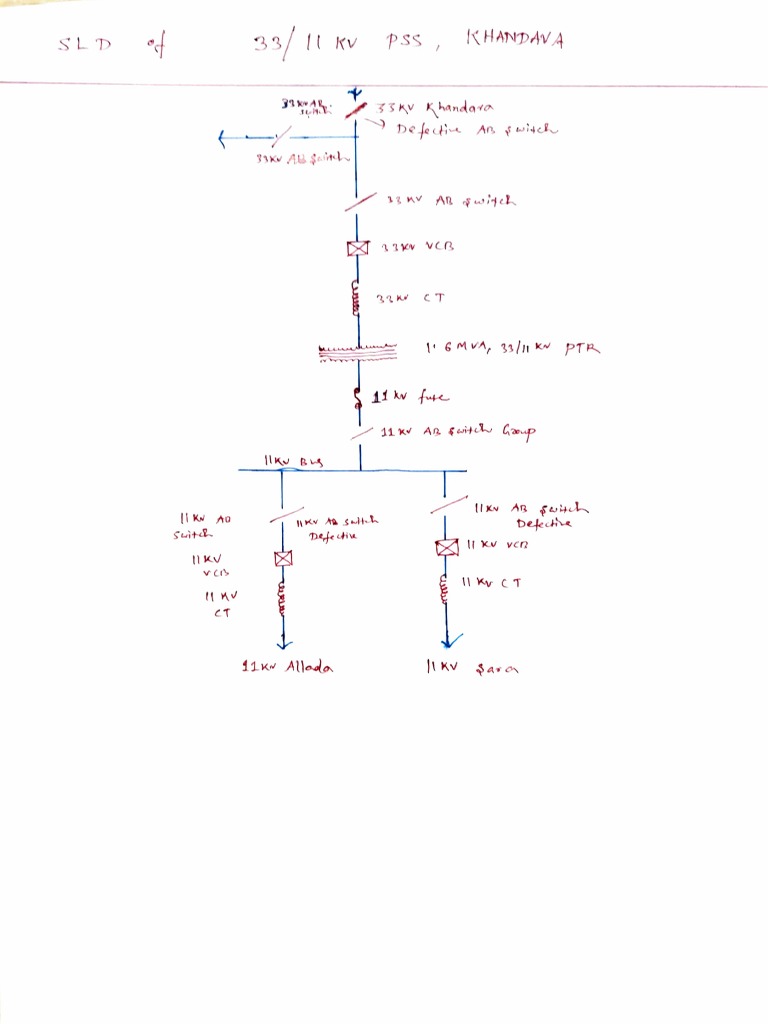 SLD of 33/11 KV PSS, KHANDAVA
33KV AB
switch
33KV Khandava
Defective AB switch
33KV AB switch
33 KV AB switch
33KV VCB
33KV CT
1.6 MVA, 33/11 KV PTR
11 KV fuse
11 KV AB switch Group
11KV Bus
11 KV AB
switch
11KV AB switch
Defective
11KV AB switch
Defective
11 KV
VCB
11 KV VCB
11 KV
CT
11 KV CT
11KV Allada
11 KV Sara